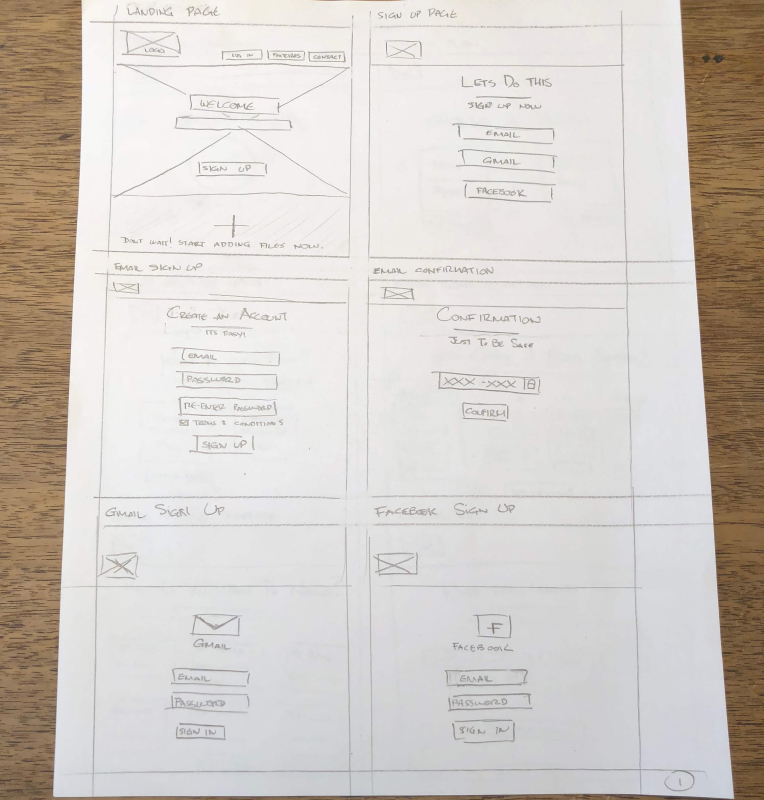 LANDING PAGE
LOGO
LOG IN
FEATURES
CONTACT
WELCOME
SIGN UP
DONT WAIT! START ADDING FILES NOW.
SIGN UP PAGE
LETS DO THIS
SIGN UP NOW
EMAIL
GMAIL
FACEBOOK
EMAIL SIGN UP
CREATE AN ACCOUNT
ITS EASY!
EMAIL
PASSWORD
RE-ENTER PASSWORD
TERMS & CONDITIONS
SIGN UP
EMAIL CONFIRMATION
CONFIRMATION
JUST TO BE SAFE
XXX -XXX
CONFIRM
GMAIL SIGN UP
GMAIL
EMAIL
PASSWORD
SIGN IN
FACEBOOK SIGN UP
F
FACEBOOK
EMAIL
PASSWORD
SIGN IN
1